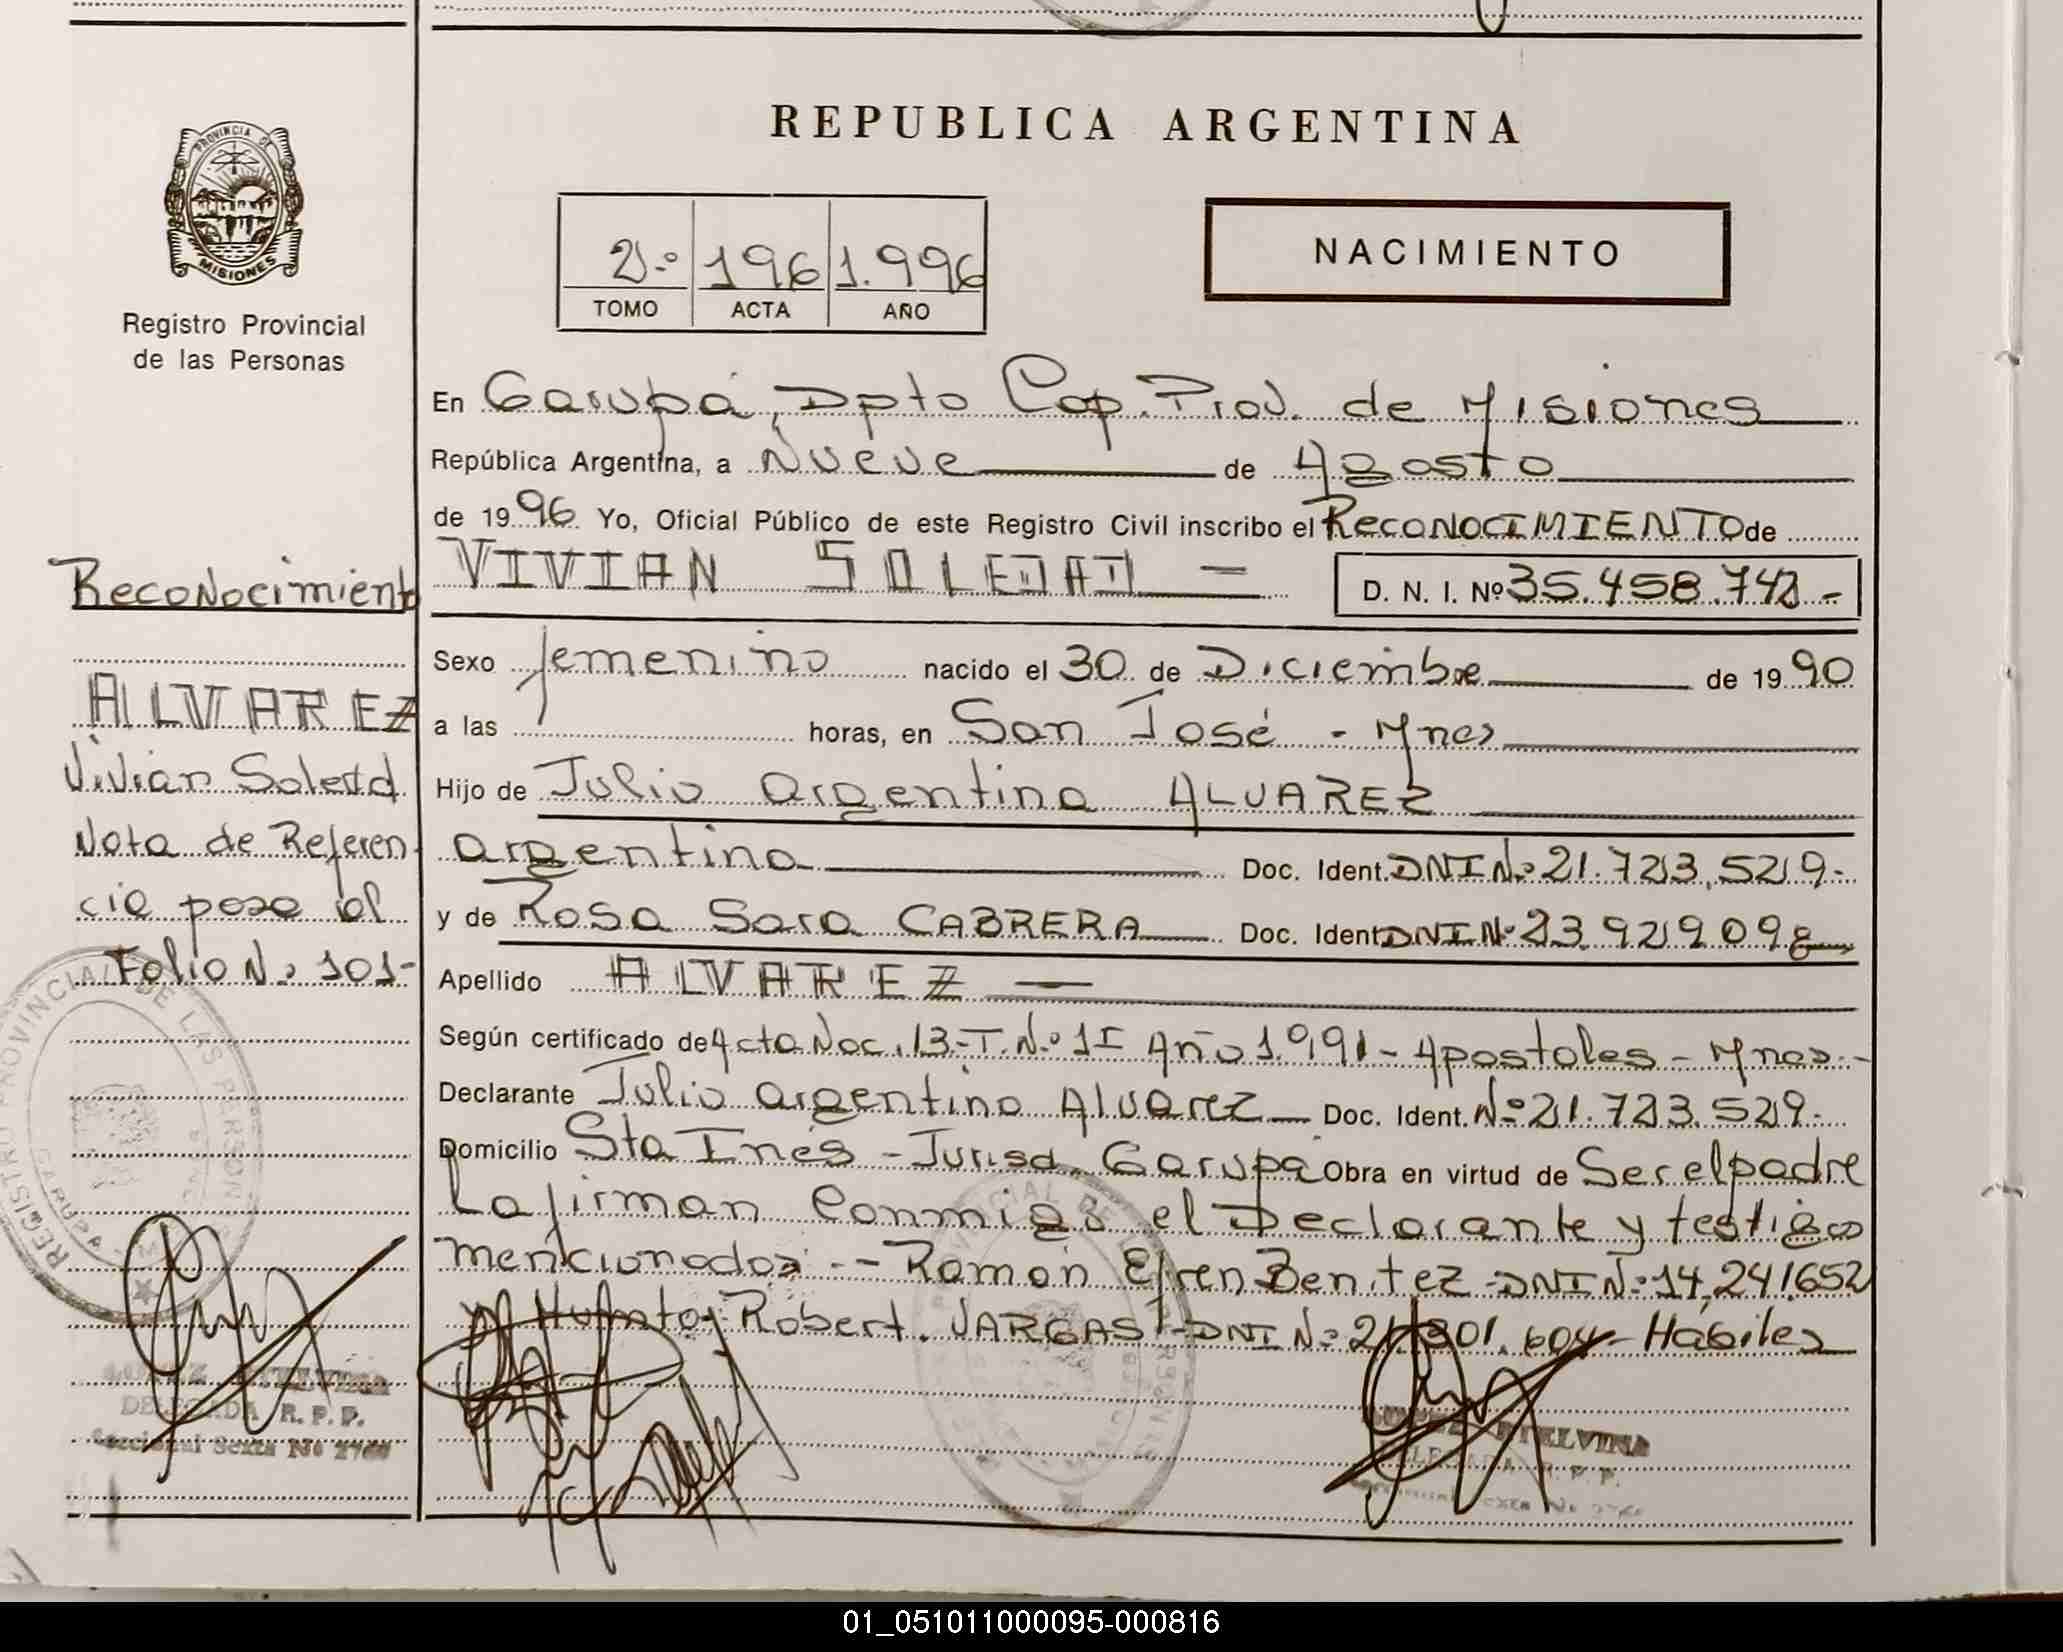 REPUBLICA ARGENTINA
PROVINCIA DE
MISIONES
Registro Provincial
de las Personas
2º 196 1.996
TOMO ACTA AÑO
NACIMIENTO
En Garupá, Dpto Cap. Prov. de Misiones
República Argentina, a Nueve de Agosto
de 1996 Yo, Oficial Público de este Registro Civil inscribo el RECONOCIMIENTO de
VIVIAN SOLEDAD
D. N. I. Nº 35.458.742.-
Sexo femenino nacido el 30 de Diciembre de 1990
a las horas, en San José - Mnes
Hijo de Julio Argentino ALVAREZ
argentino Doc. Ident. DNI Nº 21.723.529-
y de Rosa Sara CABRERA Doc. Ident. DNI Nº 23.929.098
Apellido ALVAREZ
Según certificado de Acta Nac. 13-T.Nº 1I Año 1.991 - Apostoles - Mnes.-
Declarante Julio argentino Alvarez Doc. Ident. Nº 21.723.529-
Domicilio Sta Inés - Jurisd. Garupá Obra en virtud de Ser el padre
La firman Conmigo el Declarante y testigos
mencionados .-- Ramón Efren Benitez - DNI Nº 14.241652
y Robert. VARGAS - DNI Nº Hábiles
Reconocimiento
ALVAREZ
Vivian Soledad
Nota de Referen-
cia pasa al
Folio Nº 101-
REGISTRO PROVINCIAL DE LAS PERSONAS
GARUPA
DELEGADA R. P. P.
Seccional Sexta Nº
ETELVINA
R. P. P.
01_051011000095-000816